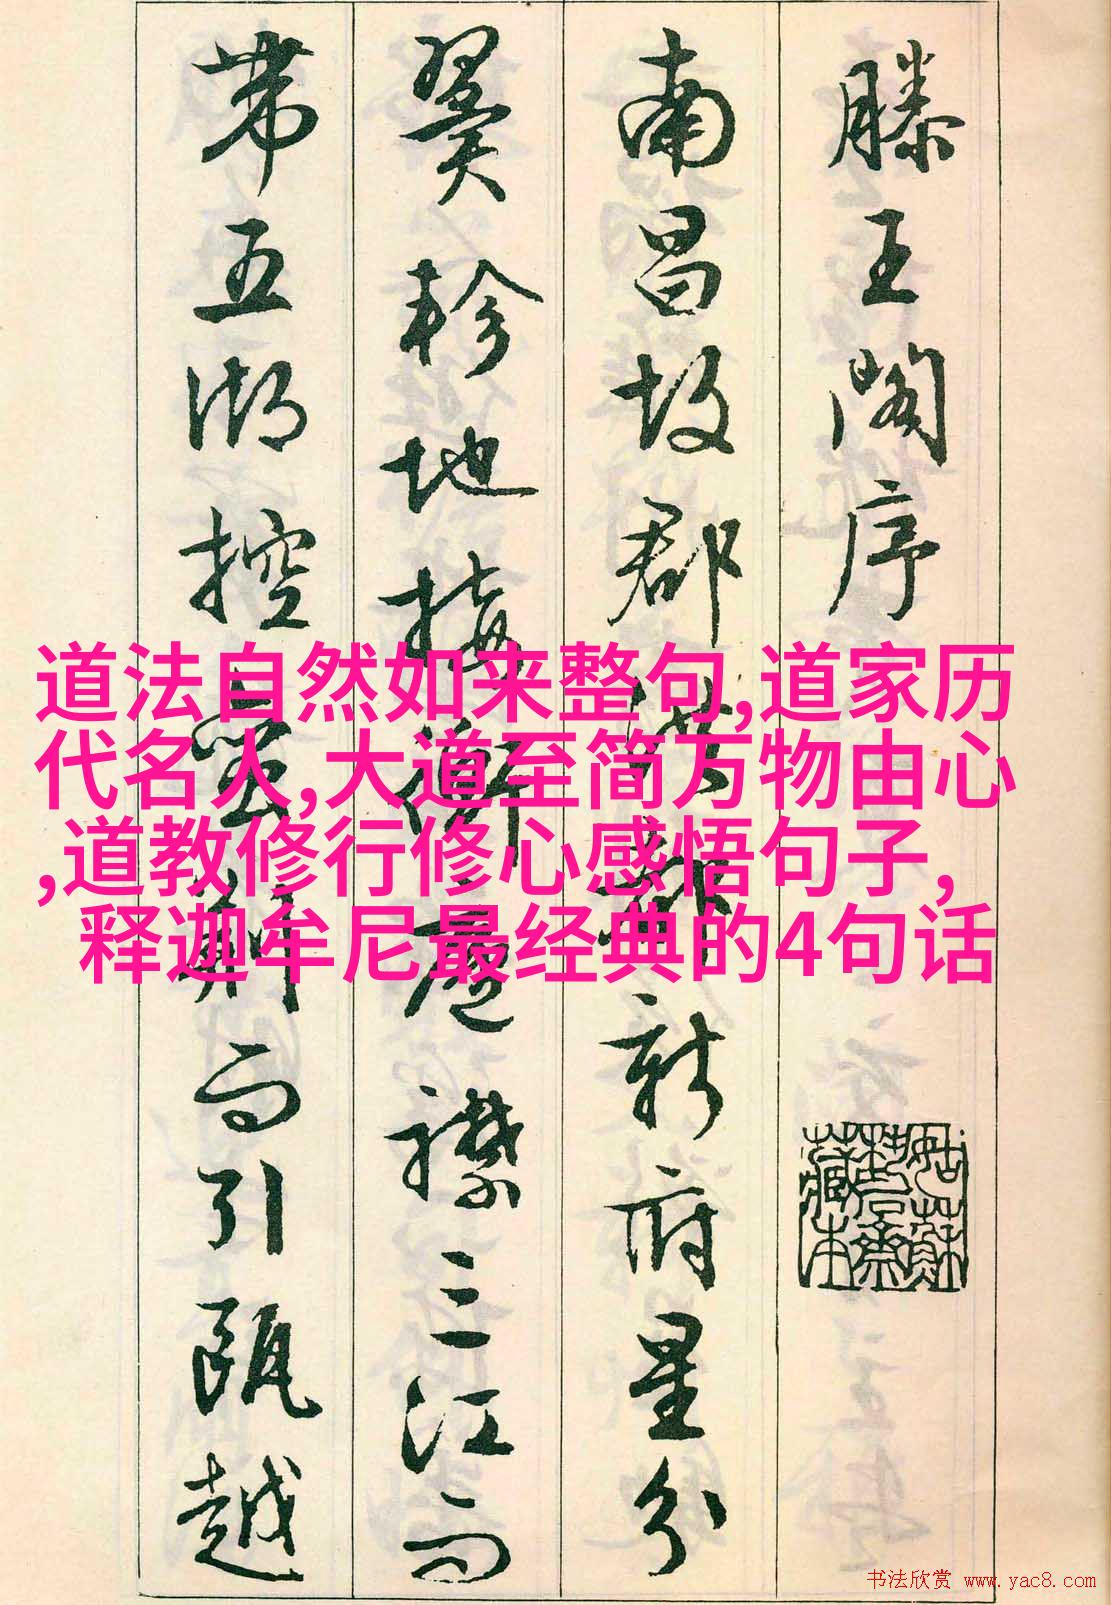 滕王阁序
南昌故郡洪都新府星分
翼軫地接衡廬襟三江而
帶五湖控蠻荆而引甌越
姑蘇
藏本
道法自然如来整句,道家历
代名人,大道至简万物由心
,道教修行修心感悟句子,
释迦牟尼最经典的4句话
书法欣赏 www.yac8.com